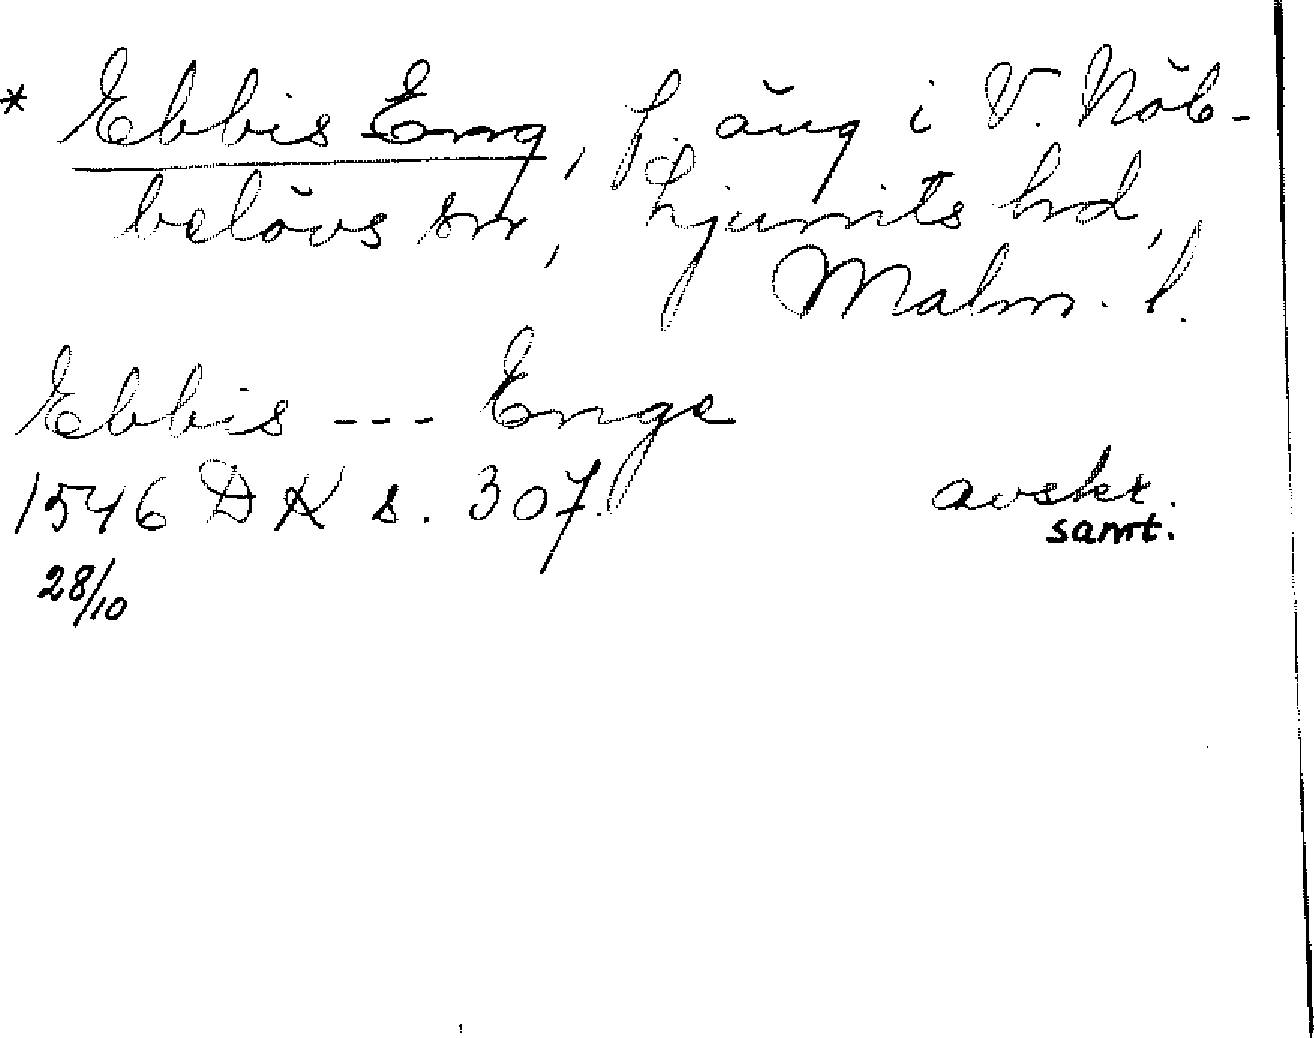 * Ebbis Eng, f. äng i V. Nöb-
belövs sn, Ljunits hd,
Malm. l.
Ebbis --- Enge
1546 DK s. 307.
avskr.
samt.
28/10